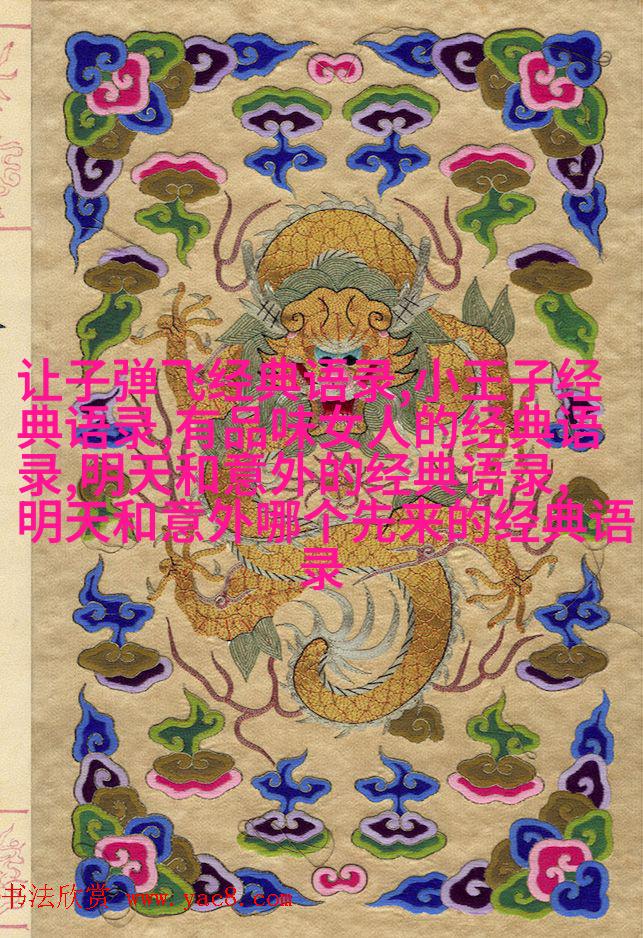 让子弹飞经典语录,小王子经
典语录,有品味女人的经典语
录,明天和意外的经典语录,
明天和意外哪个先来的经典语
录
书法欣赏 www.yac8.com